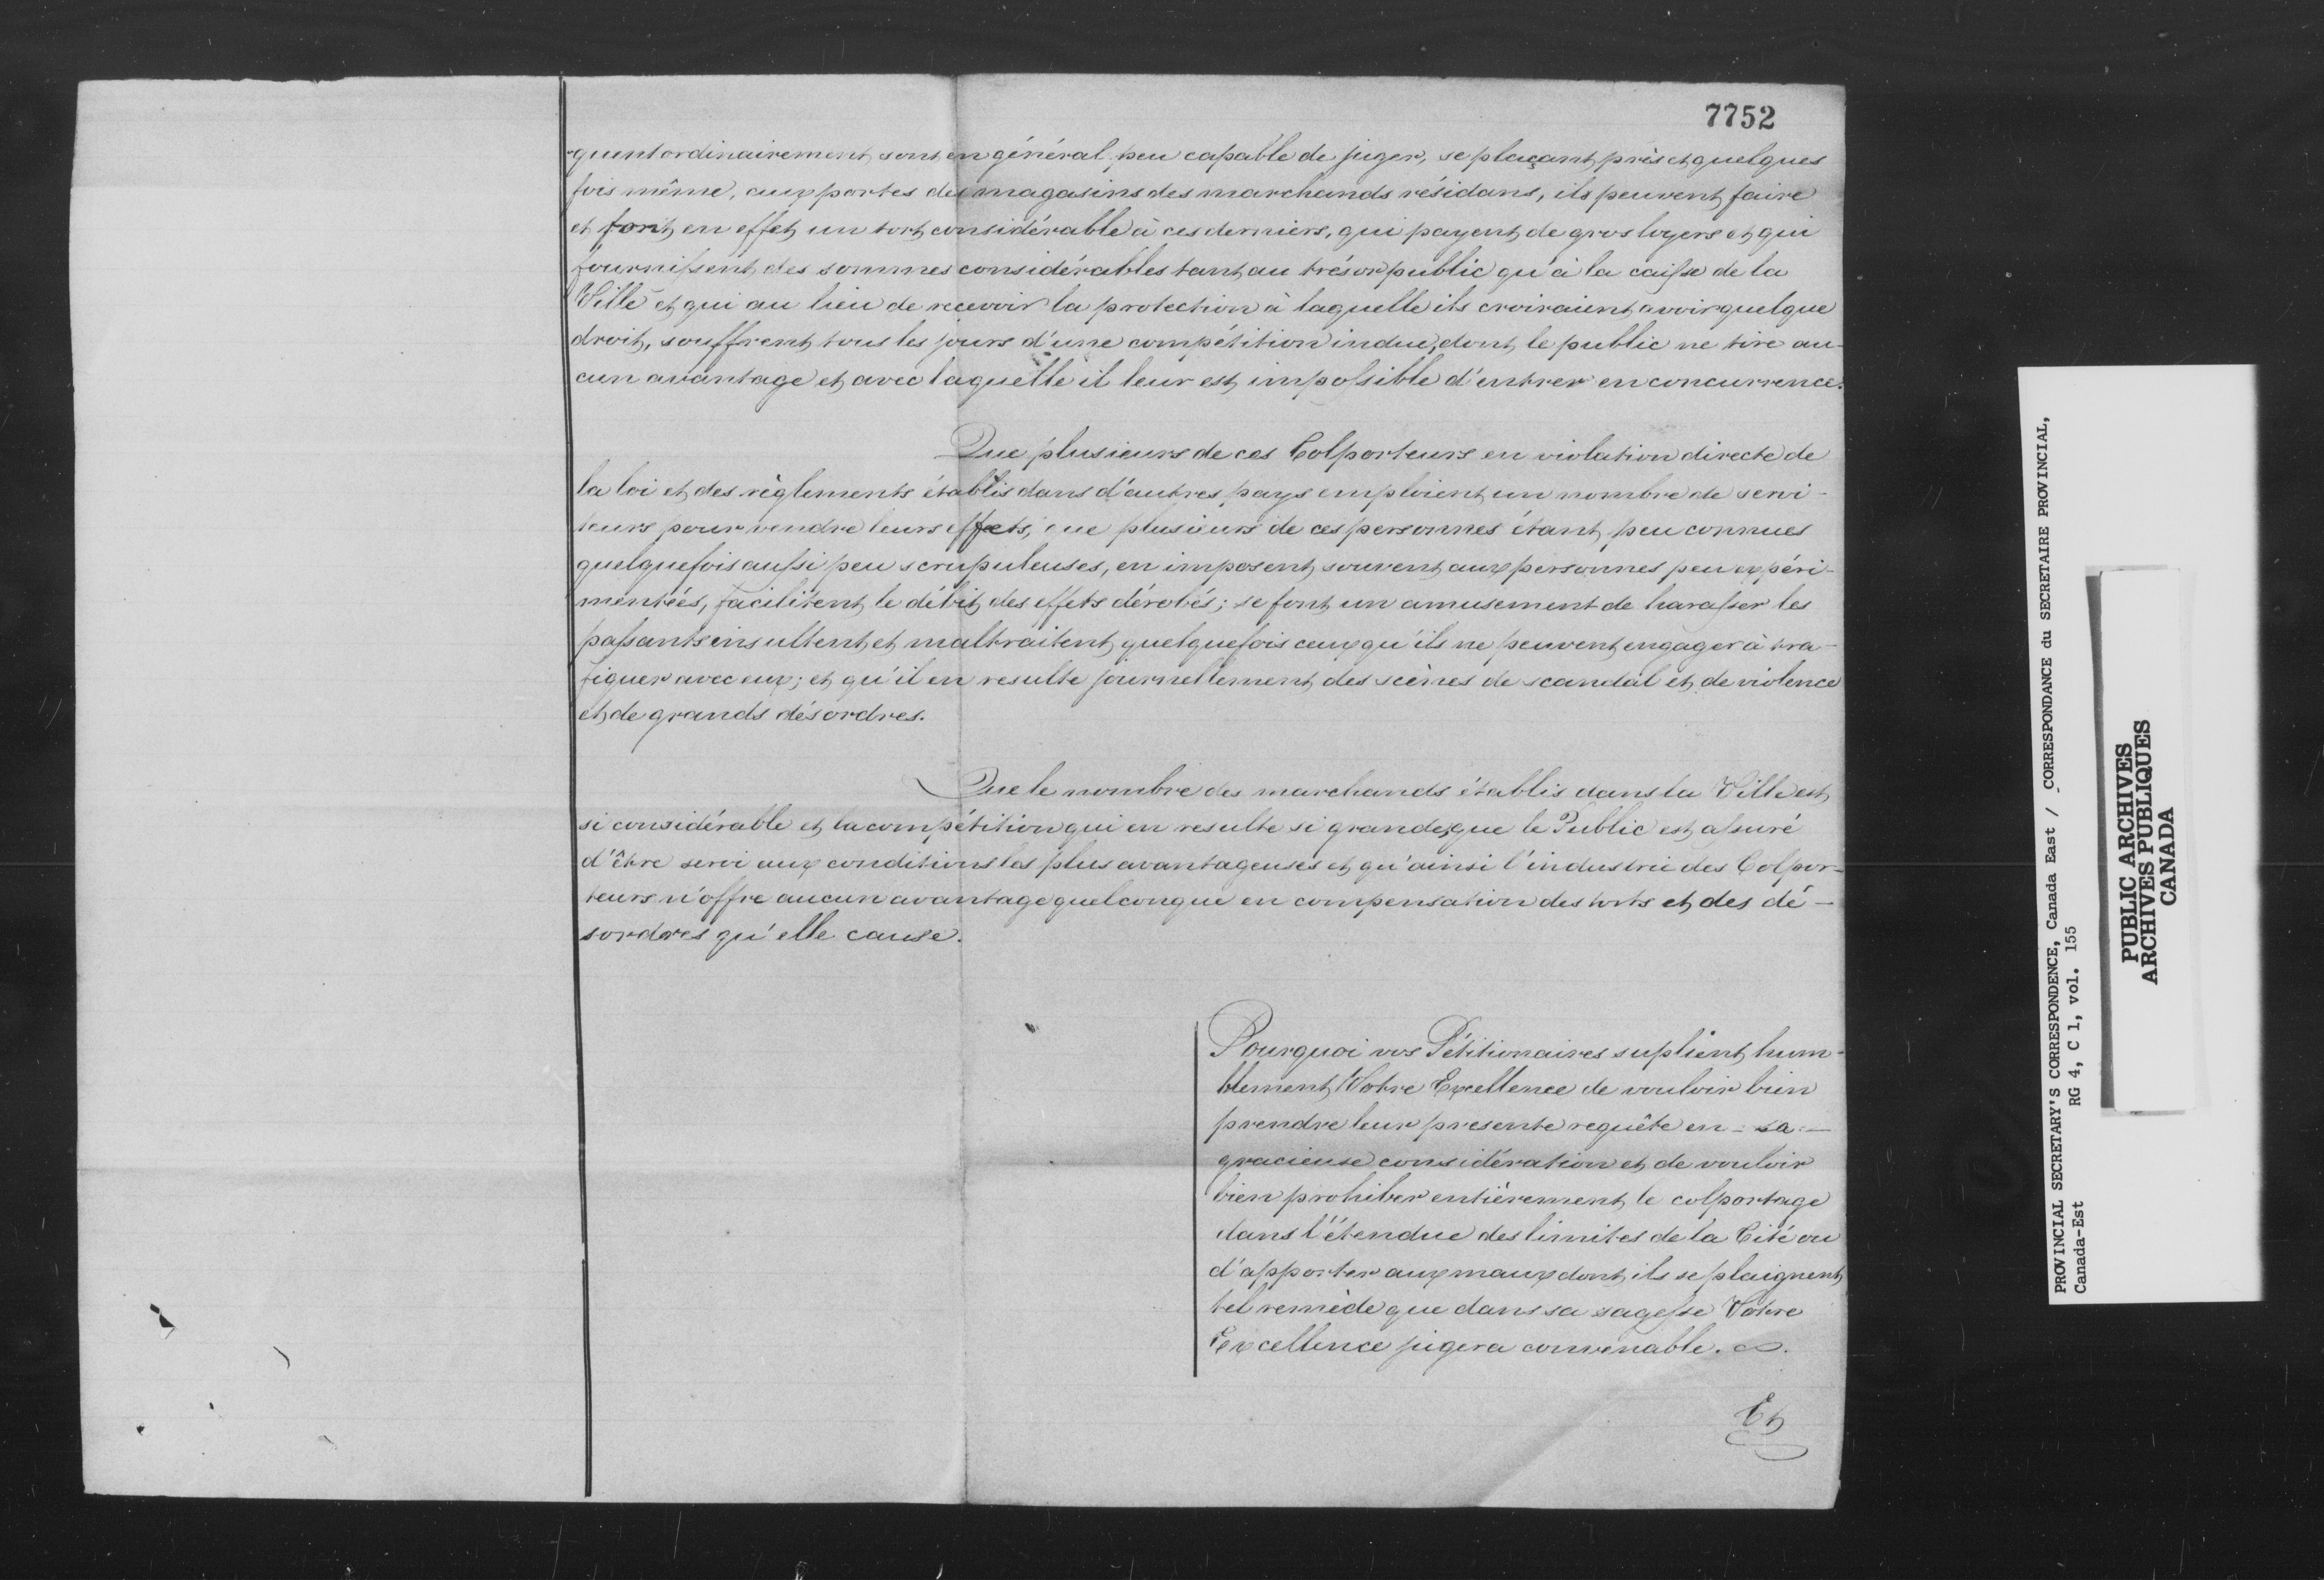 7752
-quent ordinairement, sont en général peu capable de juger, se plaçant près et quelques
fois même, aux portes des magasins des marchands résidans, ils peuvent faire
et font en effet un tort considérable à ces derniers, qui payent de gros loyers et qui
fournissent des sommes considérables tant au trésor public qu'à la caisse de la
Ville et qui au lieu de recevoir la protection à laquelle ils croiraient avoir quelque
droit, souffrent tous les jours d'une compétition indue, dont le public ne tire au-
cun avantage et avec laquelle il leur est impossible d'entrer en concurrence.
Que plusieurs de ces Colporteurs en violation directe de
la loi et des règlements établis dans d'autres pays emploient un nombre de servi-
teurs pour vendre leurs effets, que plusieurs de ces personnes étant peu connues
quelquefois aussi peu scrupuleuses, en imposent souvent aux personnes peu expéri-
mentées, facilitent le débit des effets dérobés; se font un amusement de harasser les
passants insultent et maltraitent quelquefois ceux qu'ils ne peuvent engager à tra-
fiquer avec eux; et qu'il en resulte journellement des scènes de scandal et de violence
et de grands désordres.
Que le nombre des marchands établis dans la Ville est
si considérable et la compétition qui en resulte si grande, que le Public est assuré
d'être servi aux conditions les plus avantageuses et qu'ainsi l'industrie des Colpor-
teurs n'offre aucun avantage quelconque en compensation des torts et des dé-
sordres qu'elle cause.
Pourquoi vos Pétitionaires suplient hum-
blement Votre Excellence de vouloir bien
prendre leur presente requête en sa
gracieuse considération et de vouloir
bien prohiber entièrement le colportage
dans l'étendue des limites de la Cité ou
d'apporter aux maux dont ils se plaignent
tel remède que dans sa sagesse Votre
Excellence jugera convenable.
Et
PROVINCIAL SECRETARY'S CORRESPONDENCE, Canada East / CORRESPONDANCE du SECRETAIRE PROVINCIAL,
Canada-Est RG 4, C 1, vol. 155
PUBLIC ARCHIVES
ARCHIVES PUBLIQUES
CANADA